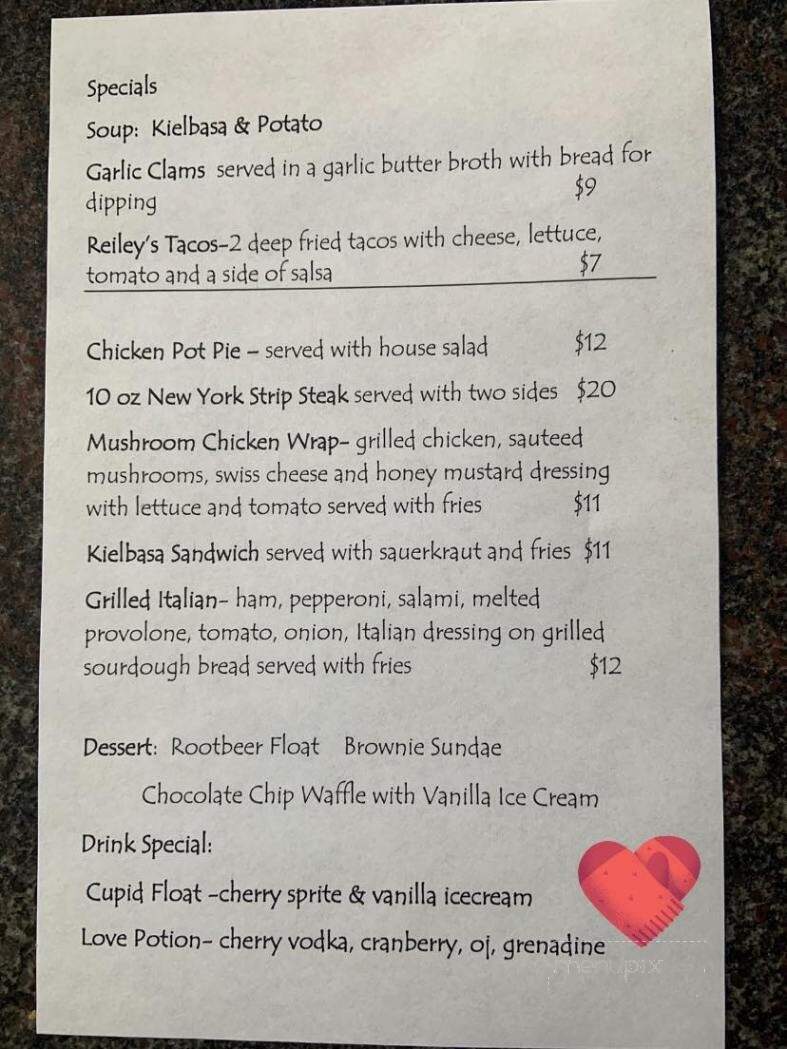 Specials
Soup: Kielbasa & Potato
Garlic Clams served in a garlic butter broth with bread for
dipping $9
Reiley's Tacos-2 deep fried tacos with cheese, lettuce,
tomato and a side of salsa $7
Chicken Pot Pie – served with house salad $12
10 oz New York Strip Steak served with two sides $20
Mushroom Chicken Wrap- grilled chicken, sauteed
mushrooms, swiss cheese and honey mustard dressing
with lettuce and tomato served with fries $11
Kielbasa Sandwich served with sauerkraut and fries $11
Grilled Italian- ham, pepperoni, salami, melted
provolone, tomato, onion, Italian dressing on grilled
sourdough bread served with fries $12
Dessert: Rootbeer Float Brownie Sundae
Chocolate Chip Waffle with Vanilla Ice Cream
Drink Special:
Cupid Float -cherry sprite & vanilla icecream
Love Potion- cherry vodka, cranberry, oj, grenadine
menupix